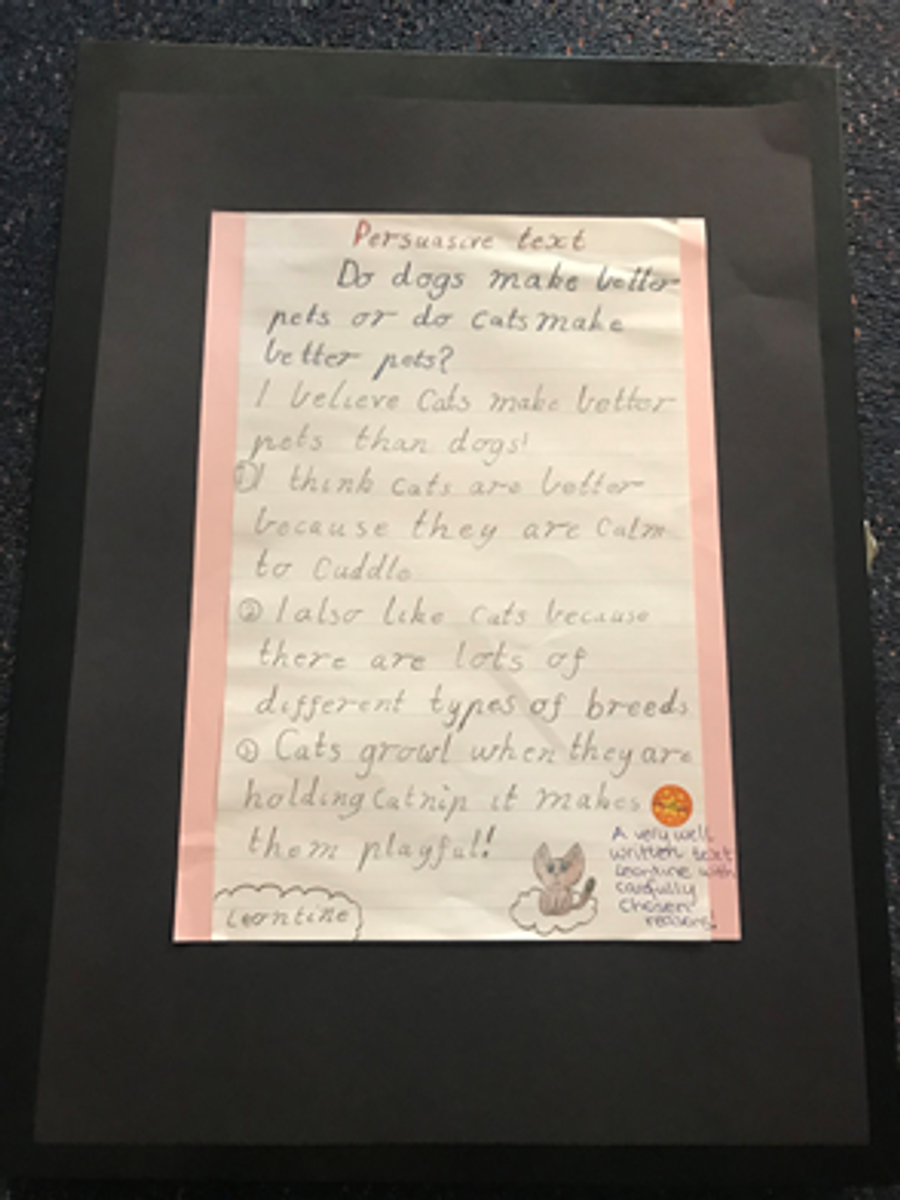 Persuasive text
Do dogs make better
pets or do cats make
better pets?
I believe Cats make better
pets than dogs!
① I think cats are better
because they are Calm
to Cuddle
② I also like cats because
there are lots of
different types of breeds.
③ Cats growl when they are
holding Catnip it makes
them playful!
A very well
written text
Leontine with
carefully
chosen
reasons!
Leontine